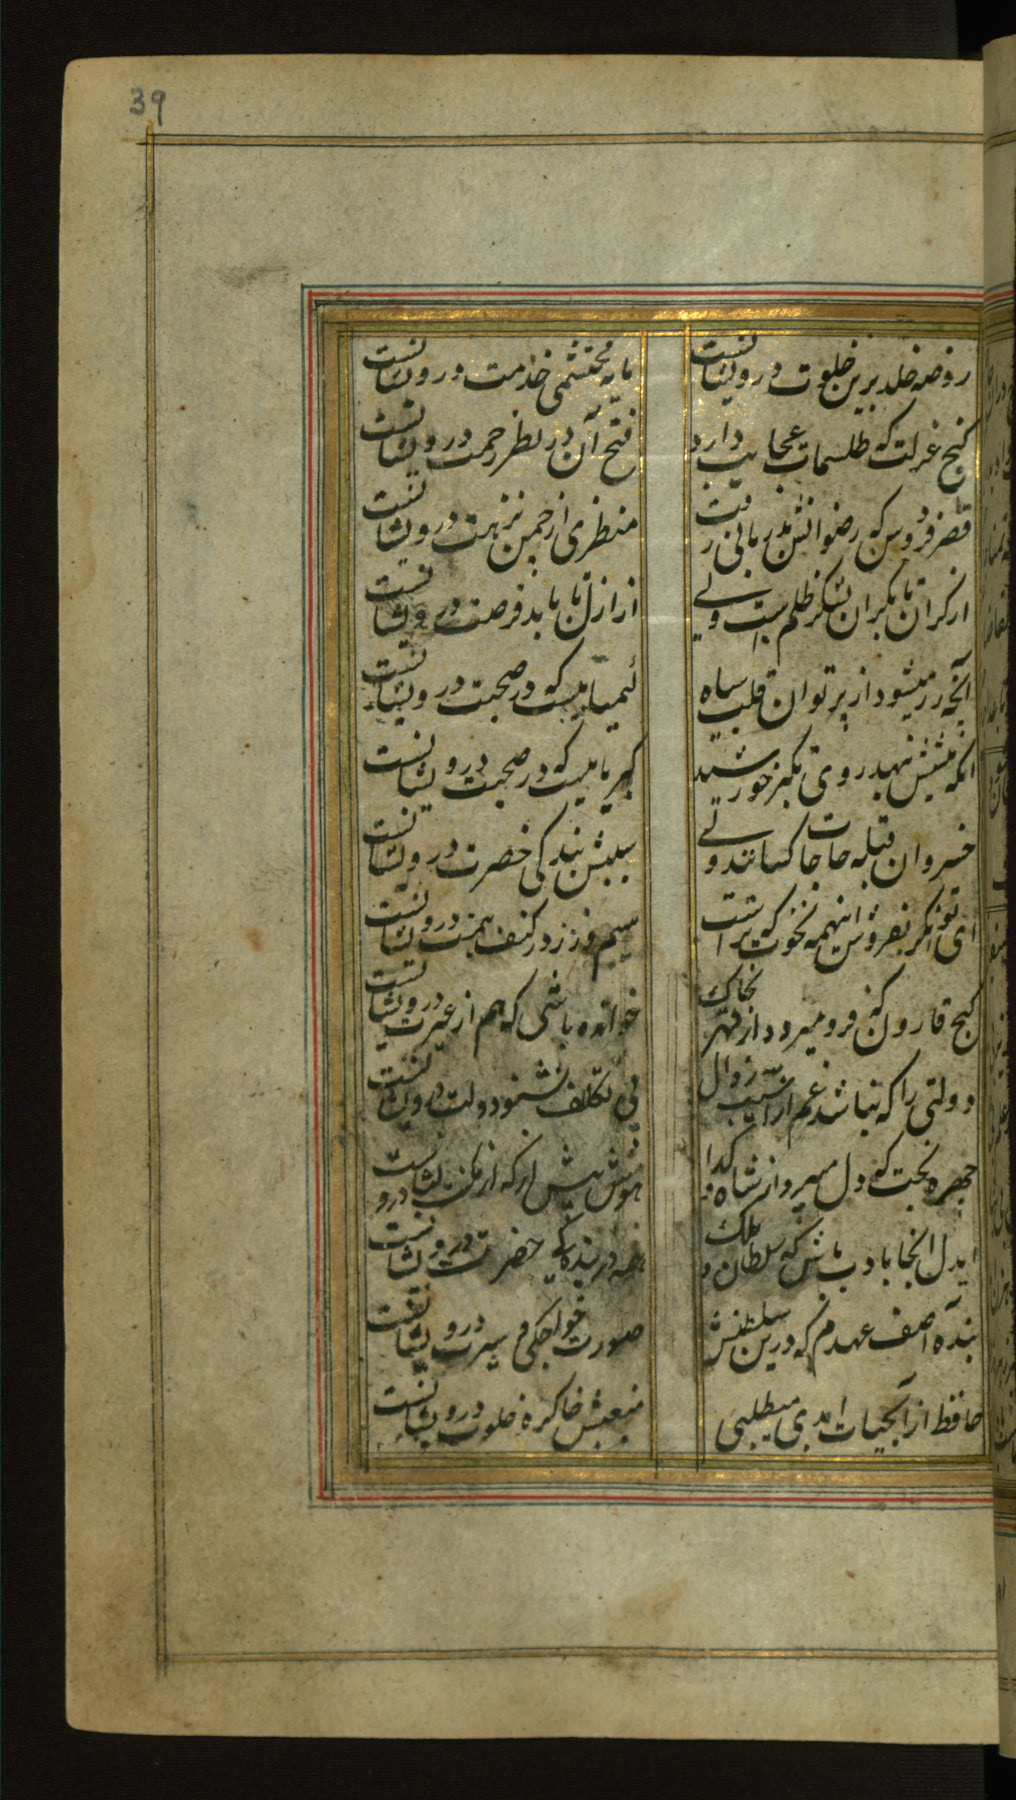 39
روضه خلد برین خلوت درویشانست
مایه محتشمی خدمت درویشانست
کنج عزلت که طلسمات عجایب دارد
فتح آن در نظر رحمت درویشانست
قصر فردوس که رضوانش بدربانی رفت
منظری از چمن نزهت درویشانست
از کران تا بکران لشکر ظلم است ولی
از ازل تا بابد فرصت درویشانست
آنچه زر میشود از پرتو آن قلب سیاه
کیمیاییست که در صحبت درویشانست
آنکه پیشش بنهد روی تکبر خورشید
کبریاییست که در صحبت درویشانست
خسروان قبله حاجات کسانند ولی
سببش بندگی حضرت درویشانست
ای توانگر بفروش اینهمه نخوت که تراست
سیم و زر در کنف همت درویشانست
کنج قارون که فرو میرود از قهر بخاک
خوانده باشی که هم از غیرت درویشانست
دولتی را که نباشد غم از آسیب زوال
بی تکلف بشنو دولت درویشانست
چهره بخت که دل میبرد از شاه و کدا
ایدل انجا بادب باش که سلطان و ملک
همه در بنده کی حضرت درویشانست
بنده آصف عهدم که درین سلطنتش
صورت خواجکی و سیرت درویشانست
حافظ از آبحیات ابدی میطلبی
منبعش خاک ره خلوت درویشانست